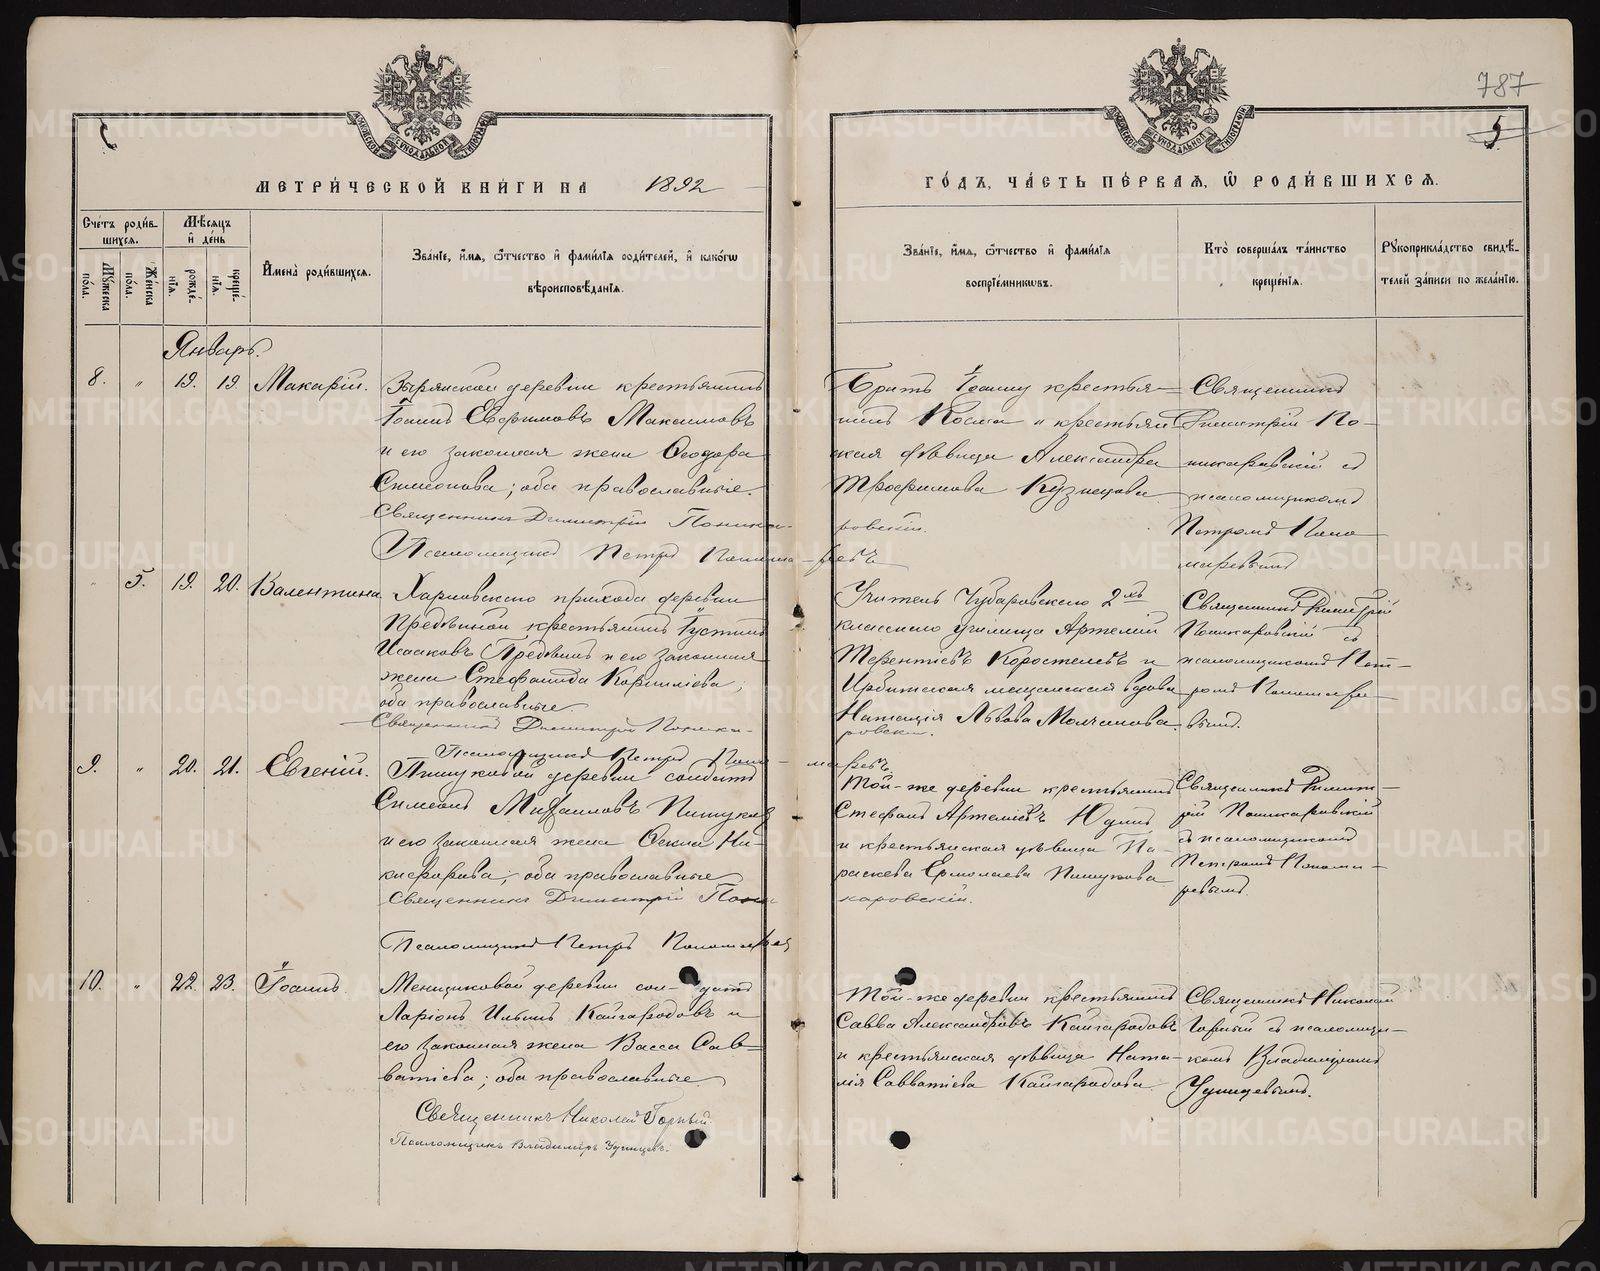 787
5
МЕТРИ́ЧЕСКОЙ КНИ́ГИ НА 1892
ГО́ДЪ, ЧА́СТЬ ПЕ́РВАЯ, Ѡ РОДИ́ВШИХСЯ.
Сче́тъ роди́в-
шихся.
Му́жеска по́ла.
Же́нска по́ла.
Мѣ́сяцъ
и де́нь
рожде́-
нїя.
креще́-
нїя.
Имена̀ роди́вшихся.
Зва́нїе, и́мя, ѻ́тчество и фами́лїя роди́телей, и како́гѡ
вѣроисповѣ́данїя.
Зва́нїе, и́мя, ѻ́тчество и фами́лїя
воспрїе́мникѡвъ.
Кто̀ соверша́лъ та́инство
креще́нїя.
Рукоприкла́дство свидѣ́-
телей за́писи по жела́нїю.
Январь.
8. " 19. 19. Макарій.
Зырянской деревни крестьянинъ
Іоаннъ Евфимовъ Максимовъ
и его законная жена Ѳеодора
Симеонова; оба православные.
Священникъ Димитрій Поника-
ровскій.
Псаломщикъ Петръ Понома-ревъ
Братъ Іоанну крестья-
нинъ Косма и крестьян
ская дѣвица Александра
Трофимова Кузнецова
Священникъ
Димитрій По-
никаровскій съ
псаломщикомъ
Петромъ Поно
маревымъ
" 5. 19. 20. Валентина
Харловскаго прихода деревни
крестьянинъ Іустинъ
Исааковъ и его законная
жена Стефанида Корниліева;
оба православные
Священникъ Димитрій Поника-
ровскій.
Псаломщикъ Петръ Поно-маревъ
Учитель Чубаровскаго 2хъ
класснаго училища Артемій
Терентіевъ Коростелевъ и
Ирбитская мещанская вдова
Наталія Львова Молчанова.
Священникъ Димитрій
Поникаровскій съ
псаломщикомъ Пет-
ромъ Пономаре-
вымъ.
9. " 20. 21. Евгеній.
деревни солдатъ
Симеонъ Михаиловъ
и его законная жена Ѳекла Ни-
кифорова, оба православные
Священникъ Димитрій Пони
каровскій.
Псаломщикъ Петръ Пономаревъ
Той-же деревни крестьянинъ
Стефанъ Артеміевъ Юдинъ
и крестьянская дѣвица Па-
раскева Ермолаева
Священникъ Димит-
рій Поникаровскій
съ псаломщикомъ
Петромъ Понома-
ревымъ.
10. " 22. 23. Іоаннъ
Менщиковой деревни сол-датъ
Ларіонъ Ильинъ Кайгародовъ и
его законная жена Васса Сав-
ватіева; оба православные
Священникъ Николай Горный.
Псаломщикъ Владиміръ Удинцевъ.
Той-же деревни крестьянинъ
Савва Александровъ Кайгародовъ
и крестьянская дѣвица Ната-
лія Савватіева Кайгародова.
Священникъ Николай
Горный съ псаломщи-
комъ Владиміромъ
Удинцевымъ.
METRIKI.GASO-URAL.RU